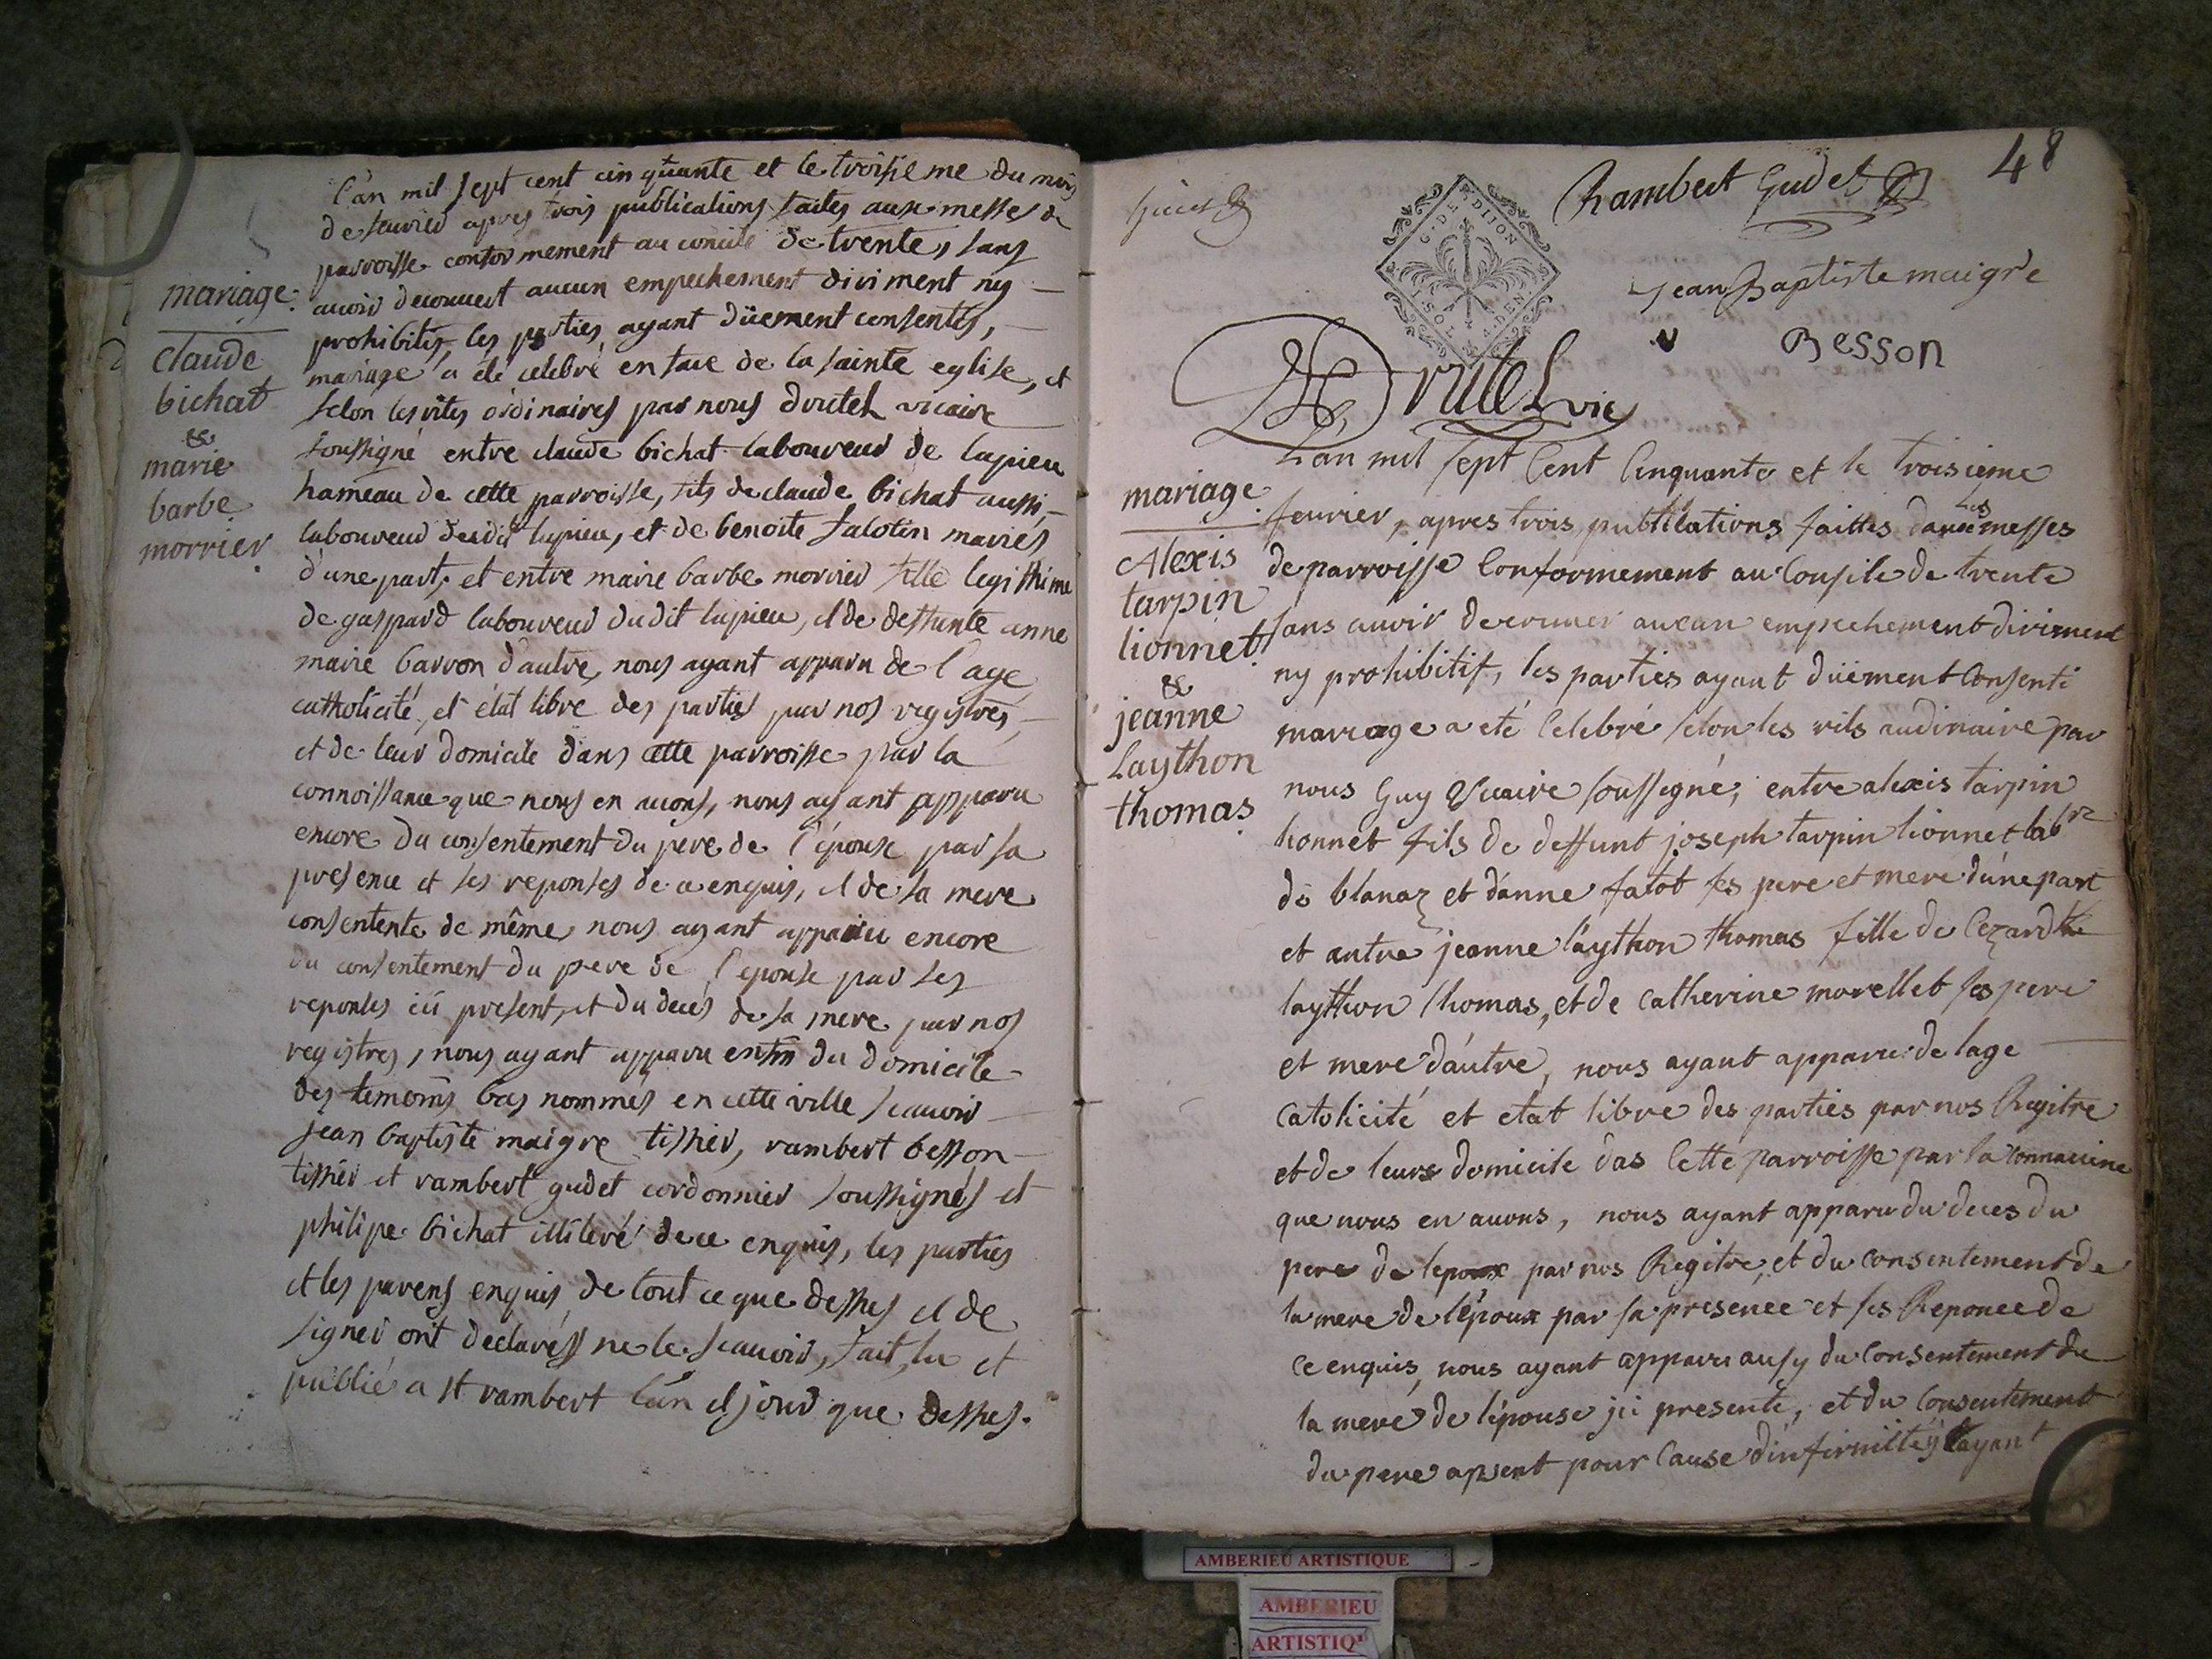 mariage.
claude
bichat
&
marie
barbe
morrier.
l'an mil sept cent cinquante et le troisieme du mois
de feuvrier apres trois publications faites aux messes de
parroisse conformement au concile de trente, sans
avoir decouvert aucun empechement diriment ny
prohibitif, les parties ayant düement consenties,
mariage a été celebré en face de la sainte eglise, et
selon les rites ordinaires par nous drutel vicaire
soussigné entre claude bichat laboureur de lupieu
hameau de cette parroisse, fils de claude bichat aussi
laboureur dudit lupieu, et de benoite falotin mariés
d'une part, et entre marie barbe morrier fille legithime
de gaspard laboureur dudit lupieu, et de deffunte anne
marie barron d'autre, nous ayant apparu de l'age
catholicité, et état libre des parties par nos registres,
et de leur domicile dans cette parroisse par la
connoissance que nous en avons, nous ayant apparu
encore du consentement du pere de l'époux par sa
presence et ses reponses de ce enquis, et de la mere
consentente de même, nous ayant apparu encore
du consentement du pere de l'epouse par ses
reponses ici present, et du deces de sa mere par nos
registres, nous ayant apparu enfin du domicile
des temoins bas nommés en cette ville scauoir
jean baptiste maigre tissier, rambert besson
tissier et rambert gudet cordonnier soussignés et
philipe bichat illiteré de ce enquis, les parties
et les parens enquis de tout ce que dessus et de
signer ont declarés ne le scauoir, fait, lu et
publié a st rambert l'an et jour que dessus.
48
Rambert Gudet
G. DE DIJON
jean Baptiste maigre
Besson
Drutel vic
mariage.
Alexis
tarpin
lionnet
&
jeanne
Laython
thomas
L'an mil sept Cent Cinquante et le troisieme
feurier, apres trois publications faittes messes
de parroisse Conformement au Consile de trente
sans auoir aucun empechement diriment
ny prohibitif, les parties ayant düement Consenti
mariage a eté Celebré selon les rits audinaire par
nous Guy Vicaire soussigné, entre alexis tarpin
lionnet fils de deffunt joseph tarpin lionnet labr
de blanaz et d'anne falot ses pere et mere d'une part
et antre jeanne l'aython thomas fille de Cezard
laython thomas, et de Catherine morellet ses pere
et mere d'autre, nous ayant apparu de lage
Catolicité et etat libre des parties par nos Regitre
et de leurs domicile das Cette parroisse par la
que nous en auons, nous ayant apparu du deces du
pere de lepoux par nos Regitre, et du Consentement de
la mere de l'époux par sa presence et ses Reponce de
Ce enquis, nous ayant apparu ausy du Consentement de
la mere de l'épouse jci presente, et du Consentement
du pere apsent pour Cause d'infirmitté
AMBERIEU ARTISTIQUE
AMBERIEU
ARTISTIQ